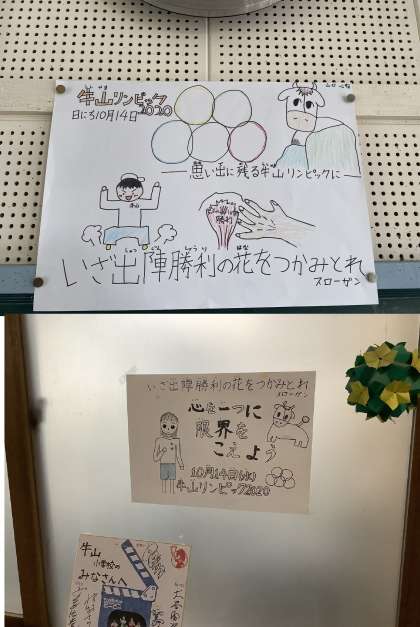 牛山リンピック
2020
日にち10月14日
思い出に残る牛山リンピックに
いざ出陣勝利の花をつかみとれ
スローガン
いざ出陣勝利の花をつかみとれ
スローガン
心を一つに
限界を
こえよう
10月14日(水)
牛山リンピック2020
牛山
小学校の
みなさんへ